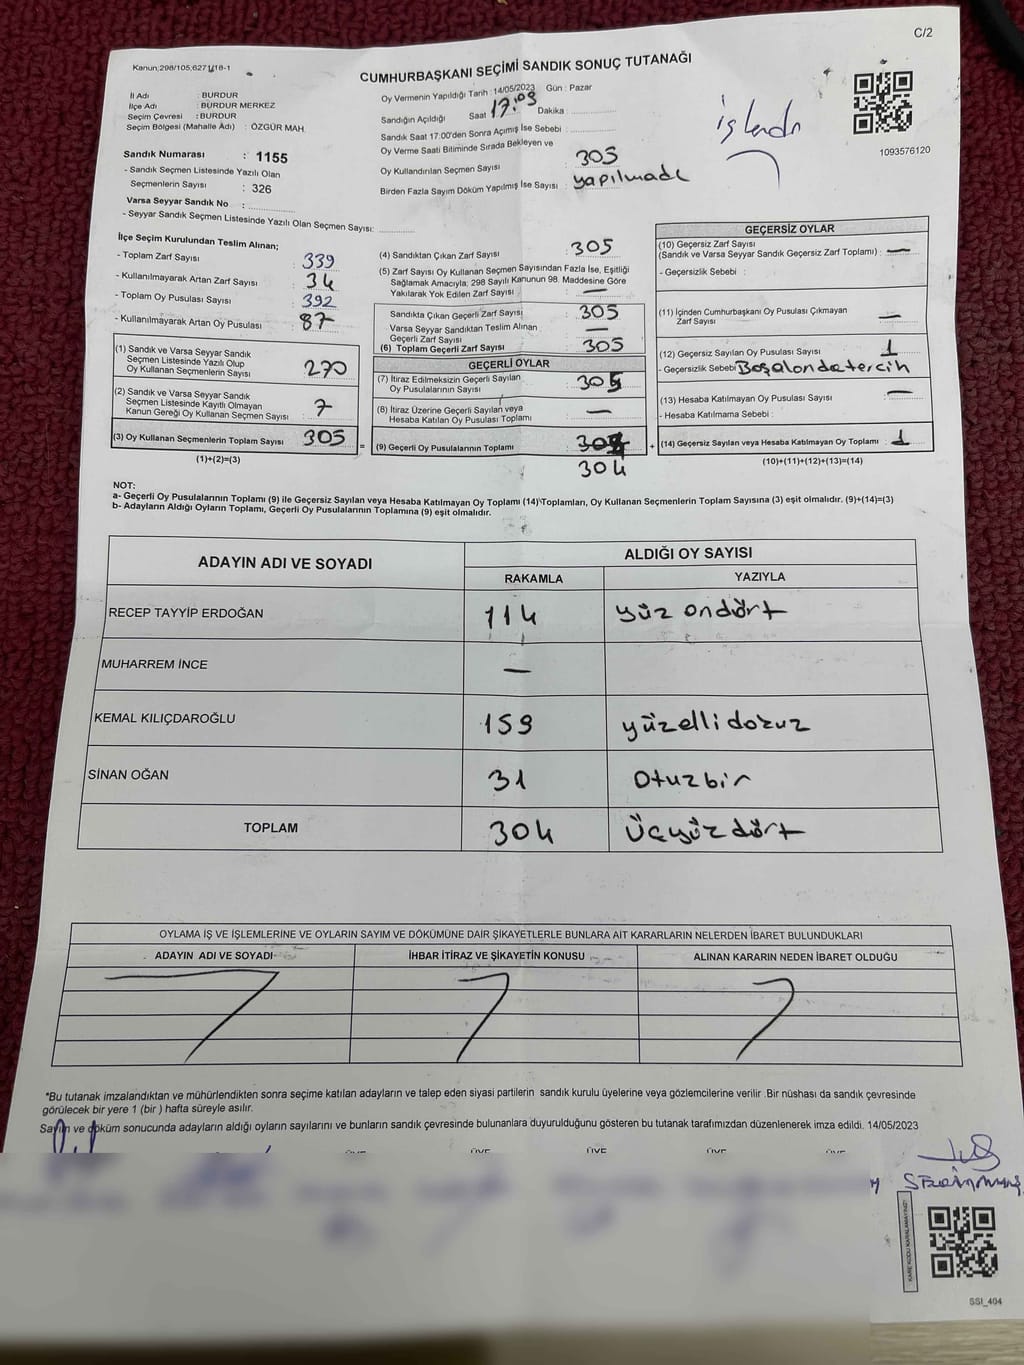 C/2
Kanun:298/105,627 1/18-1
CUMHURBAŞKANI SEÇİMİ SANDIK SONUÇ TUTANAĞI
İl Adı : BURDUR
İlçe Adı : BURDUR MERKEZ
Seçim Çevresi : BURDUR
Seçim Bölgesi (Mahalle Adı) : ÖZGÜR MAH.
Sandık Numarası : 1155
- Sandık Seçmen Listesinde Yazılı Olan
Seçmenlerin Sayısı : 326
Varsa Seyyar Sandık No :
- Seyyar Sandık Seçmen Listesinde Yazılı Olan Seçmen Sayısı:
Oy Vermenin Yapıldığı Tarih : 14/05/2023 Gün : Pazar
Sandığın Açıldığı Saat 17:09 Dakika
Sandık Saat 17:00'den Sonra Açımış İse Sebebi :
Oy Verme Saati Bitiminde Sırada Bekleyen ve
Oy Kullandırılan Seçmen Sayısı : 305
Birden Fazla Sayım Döküm Yapılmış İse Sayısı : yapılmadı
işlendi
1093576120
İlçe Seçim Kurulundan Teslim Alınan;
- Toplam Zarf Sayısı : 339
- Kullanılmayarak Artan Zarf Sayısı : 34
- Toplam Oy Pusulası Sayısı : 392
- Kullanılmayarak Artan Oy Pusulası : 87
(1) Sandık ve Varsa Seyyar Sandık
Seçmen Listesinde Yazılı Olup
Oy Kullanan Seçmenlerin Sayısı : 270
(2) Sandık ve Varsa Seyyar Sandık
Seçmen Listesinde Kayıtlı Olmayan
Kanun Gereği Oy Kullanan Seçmen Sayısı : 7
(3) Oy Kullanan Seçmenlerin Toplam Sayısı : 305
(1)+(2)=(3)
=
(4) Sandıktan Çıkan Zarf Sayısı : 305
(5) Zarf Sayısı Oy Kullanan Seçmen Sayısından Fazla İse, Eşitliği
Sağlamak Amacıyla; 298 Sayılı Kanunun 98. Maddesine Göre
Yakılarak Yok Edilen Zarf Sayısı : —
Sandıkta Çıkan Geçerli Zarf Sayısı : 305
Varsa Seyyar Sandıktan Teslim Alınan
Geçerli Zarf Sayısı : —
(6) Toplam Geçerli Zarf Sayısı : 305
GEÇERLİ OYLAR
(7) İtiraz Edilmeksizin Geçerli Sayılan
Oy Pusulalarının Sayısı : 305
(8) İtiraz Üzerine Geçerli Sayılan veya
Hesaba Katılan Oy Pusulası Toplamı : —
(9) Geçerli Oy Pusulalarının Toplamı
304
+
GEÇERSİZ OYLAR
(10) Geçersiz Zarf Sayısı
(Sandık ve Varsa Seyyar Sandık Geçersiz Zarf Toplamı) : —
- Geçersizlik Sebebi :
(11) İçinden Cumhurbaşkanı Oy Pusulası Çıkmayan
Zarf Sayısı : —
(12) Geçersiz Sayılan Oy Pusulası Sayısı : 1
- Geçersizlik Sebebi : Boş alonda tercih
(13) Hesaba Katılmayan Oy Pusulası Sayısı : —
- Hesaba Katılmama Sebebi :
(14) Geçersiz Sayılan veya Hesaba Katılmayan Oy Toplamı : 1
(10)+(11)+(12)+(13)=(14)
NOT:
a- Geçerli Oy Pusulalarının Toplamı (9) ile Geçersiz Sayılan veya Hesaba Katılmayan Oy Toplamı (14) Toplamları, Oy Kullanan Seçmenlerin Toplam Sayısına (3) eşit olmalıdır. (9)+(14)=(3)
b- Adayların Aldığı Oyların Toplamı, Geçerli Oy Pusulalarının Toplamına (9) eşit olmalıdır.
ADAYIN ADI VE SOYADI ALDIĞI OY SAYISI
RAKAMLA YAZIYLA
RECEP TAYYİP ERDOĞAN 114 yüz ondört
MUHARREM İNCE —
KEMAL KILIÇDAROĞLU 159 yüzellidokuz
SİNAN OĞAN 31 Otuzbir
TOPLAM 304 Üçyüzdört
OYLAMA İŞ VE İŞLEMLERİNE VE OYLARIN SAYIM VE DÖKÜMÜNE DAİR ŞİKAYETLERLE BUNLARA AİT KARARLARIN NELERDEN İBARET BULUNDUKLARI
ADAYIN ADI VE SOYADI İHBAR İTİRAZ VE ŞİKAYETİN KONUSU ALINAN KARARIN NEDEN İBARET OLDUĞU
*Bu tutanak imzalandıktan ve mühürlendikten sonra seçime katılan adayların ve talep eden siyasi partilerin sandık kurulu üyelerine veya gözlemcilerine verilir .Bir nüshası da sandık çevresinde
görülecek bir yere 1 (bir ) hafta süreyle asılır.
Sayım ve döküm sonucunda adayların aldığı oyların sayılarını ve bunların sandık çevresinde bulunanlara duyurulduğunu gösteren bu tutanak tarafımızdan düzenlenerek imza edildi. 14/05/2023
ÜYE ÜYE ÜYE ÜYE ÜYE
KARE KODU KARALAMAYINIZ!
SSI_404